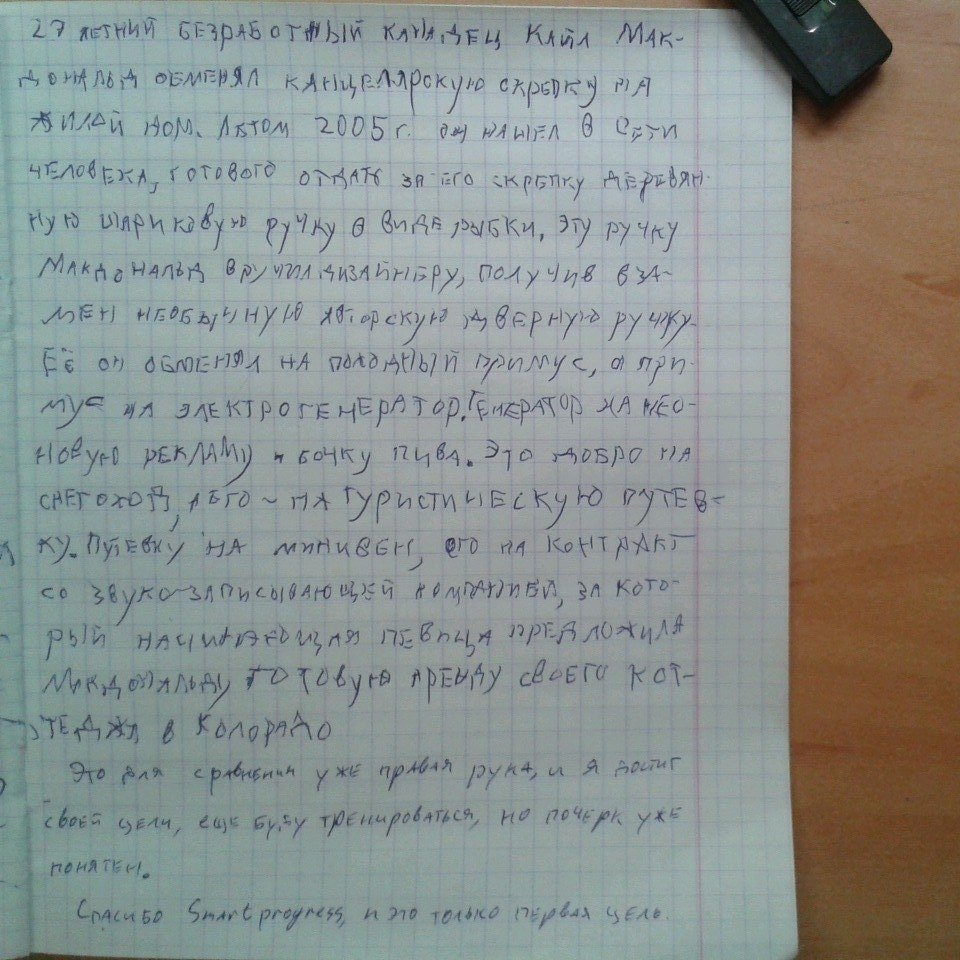 27 летний безработный канадец Кайл Мак-
дональд обменял канцелярскую скрепку на
жилой дом. Летом 2005 г. он нашел в Сети
человека, готового отдать за его скрепку деревян-
ную шариковую ручку в виде рыбки. Эту ручку
Макдональд вручил дизайнеру, получив вза-
мен необычную авторскую дверную ручку.
Её он обменял на походный примус, а при-
мус на электрогенератор. Генератор на нео-
новую рекламу и бочку пива. Это добро на
снегоход, а его - на туристическую путев-
ку. Путевку на минивен, его на контракт
со звуко-записывающей компанией, за кото-
рый начинающая певица предложила
Макдональду готовую аренду своего кот-
теджа в Колорадо
Это для сравнения уже правая рука, и я достиг
своей цели, еще буду тренироваться, но почерк уже
понятен.
Спасибо Smartprogress, и это только первая цель.